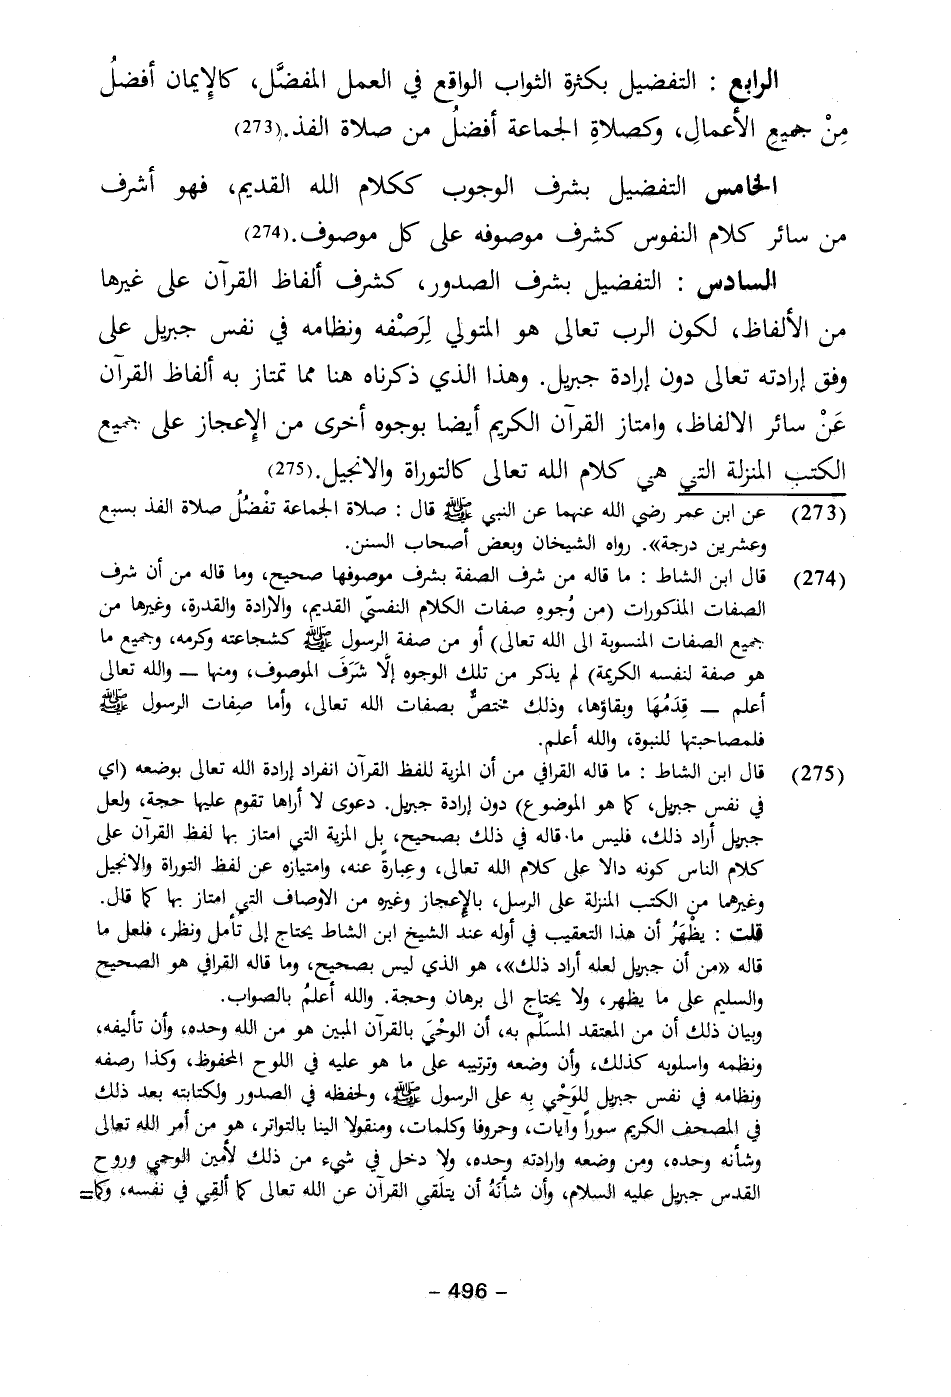 الرابع : التفضيل بكثرة الثواب الواقع في العمل المفضَّل، كالإيمان أفضلُ
مِنْ جميعِ الأعمالِ، وكصلاةِ الجماعة أفضلُ من صلاة الفذ.(273)
الخامس التفضيل بشرف الوجوب ككلام الله القديم، فهو أشرف
من سائر كلام النفوس كشرف موصوفه على كل موصوف.(274)
السادس : التفضيل بشرف الصدور، كشرف ألفاظ القرآن على غيرها
من الألفاظ، لكون الرب تعالى هو المتولي لِرَصْفه ونظامه في نفس جبريل على
وفق إرادته تعالى دون إرادة جبريل. وهذا الذي ذكرناه هنا مما تمتاز به ألفاظ القرآن
عَنْ سائر الالفاظ، وامتاز القرآن الكريم أيضا بوجوه أخرى من الإعجاز على جميع
الكتب المنزلة التي هي كلام الله تعالى كالتوراة والانجيل.(275)
(273) عن ابن عمر رضي الله عنهما عن النبي ﷺ قال : صلاة الجماعة تفْضُلُ صلاة الفذ بسبع
وعشرين درجة». رواه الشيخان وبعض أصحاب السنن.
(274) قال ابن الشاط : ما قاله من شرف الصفة بشرف موصوفها صحيح، وما قاله من أن شرف
الصفات المذكورات (من وُجوهِ صفات الكلام النفسيّ القديم، والارادة والقدرة، وغيرها من
جميع الصفات المنسوبة الى الله تعالى) أو من صفة الرسول ﷺ كشجاعته وكرمه، وجميع ما
هو صفة لنفسه الكريمة) لم يذكر من تلك الوجوه إلَّا شَرَفَ الموصوف، ومنها — والله تعالى
أعلم — قِدَمُهَا وبقاؤها، وذلك مختصٌّ بصفات الله تعالى، وأما صِفات الرسول ﷺ
فلمصاحبتها للنبوة، والله أعلم.
(275) قال ابن الشاط : ما قاله القرافي من أن المزية للفظ القرآن انفراد إرادة الله تعالى بوضعه (اي
في نفس جبريل، كما هو الموضوع) دون إرادة جبريل. دعوى لا أراها تقوم عليها حجة، ولعل
جبريل أراد ذلك، فليس ما قاله في ذلك بصحيح، بل المزية التي امتاز بها لفظ القرآن على
كلام الناس كونه دالا على كلام الله تعالى، وعِبارةً عنه، وامتيازه عن لفظ التوراة والانجيل
وغيرهما من الكتب المنزلة على الرسل، بالإعجاز وغيره من الاوصاف التي امتاز بها كما قال.
قلت : يظْهَرُ أن هذا التعقيب في أوله عند الشيخ ابن الشاط يحتاج إلى تأمل ونظر، فلعل ما
قاله «من أن جبريل لعله أراد ذلك»، هو الذي ليس بصحيح، وما قاله القرافي هو الصحيح
والسليم على ما يظهر، ولا يحتاج الى برهان وحجة. والله أعلمُ بالصواب.
وبيان ذلك أن من المعتقد المسَلَّم به، أن الوحْيَ بالقرآن المبين هو من الله وحده، وأن تأليفه،
ونظمه واسلوبه كذلك، وأن وضعه وترتيبه على ما هو عليه في اللوح المحفوظ، وكذا رصفه
ونظامه في نفس جبريل للوَحْيِ بِه على الرسول ﷺ، ولحفظه في الصدور ولكتابته بعد ذلك
في المصحف الكريم سوراً وآيات، وحروفا وكلمات، ومنقولا الينا بالتواتر، هو من أمر الله تعالى
وشأنه وحده، ومن وضعه وارادته وحده، ولا دخل في شيء من ذلك لأمين الوحي وروح
القدس جبريل عليه السلام، وأن شأنَهُ أن يتلَقى القرآن عن الله تعالى كما ألقِي في نفسه، وكما=
– 496 –